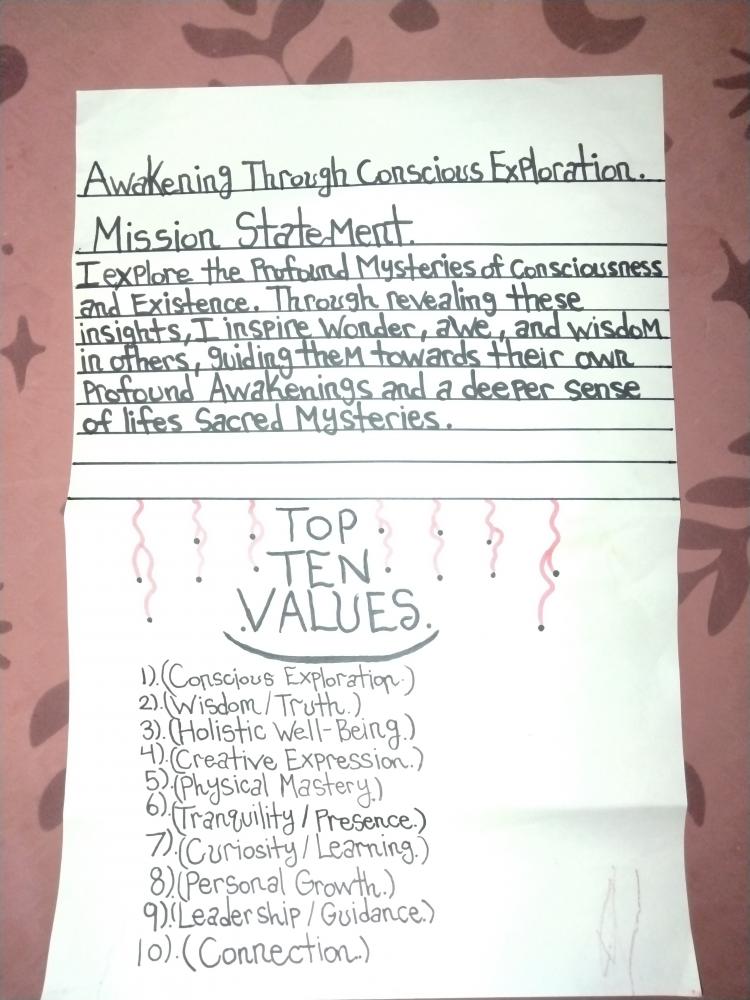 Awakening Through Conscious Exploration.
Mission Statement.
I explore the Profound Mysteries of Consciousness
and Existence. Through revealing these
insights, I inspire Wonder, awe, and wisdom
in others, guiding them towards their own
Profound Awakenings and a deeper sense
of lifes Sacred Mysteries.
TOP
TEN
VALUES.
1).(Conscious Exploration.)
2).(Wisdom/Truth.)
3).(Holistic Well-Being.)
4).(Creative Expression.)
5).(Physical Mastery.)
6).(Tranquility/Presence.)
7).(Curiosity/Learning.)
8).(Personal Growth.)
9).(Leadership/Guidance.)
10).(Connection.)